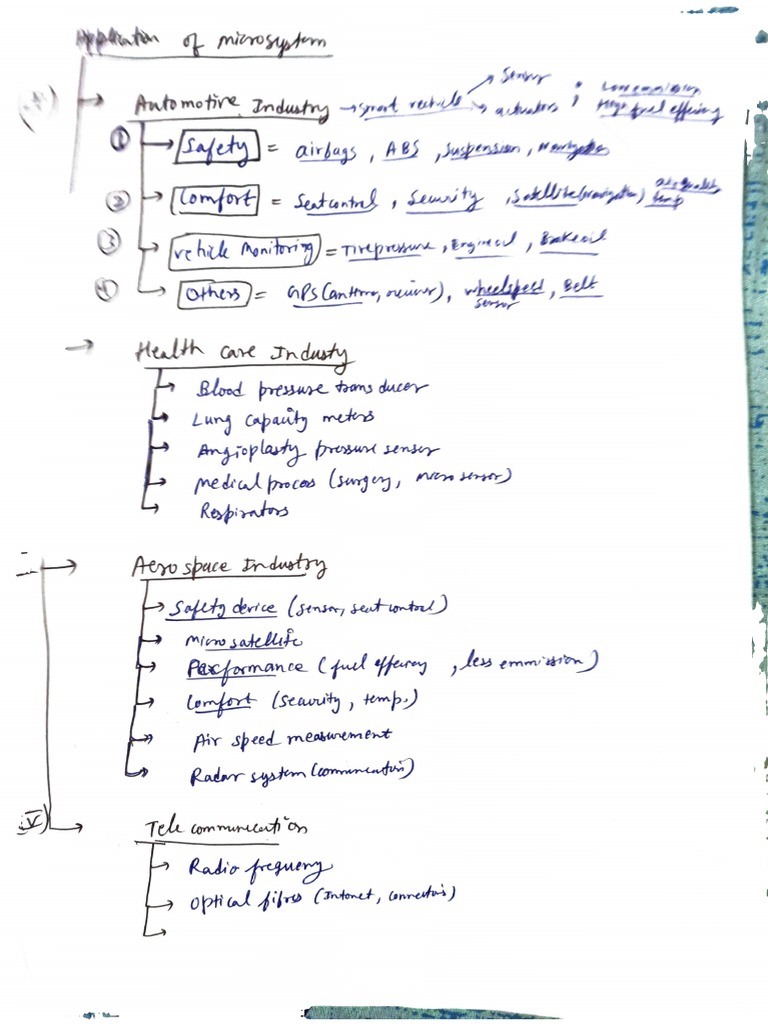 Application of microsystem
Automotive Industry → smart vehicle → Sensor → actuators ; Low emmission High fuel efficiency
① Safety = airbags, ABS, suspension, navigation
② Comfort = Seat control, Security, Satellite (navigation), air quality temp
③ vehicle Monitoring = Tire pressure, Engine oil, Brake oil
④ Others = GPS (antenna, reciever), wheelspeed sensor, Belt
→ Health care Industy
Blood pressure transducer
Lung capacity meters
Angioplasty pressure senser
Medical process (surgery, micro sensor)
Respirators
→ Aerospace Industry
Safety device (sensor, seat control)
Microsatellite
Performance (fuel efficiency, less emmission)
Comfort (security, temp.)
Air speed measurement
Radar system (communication)
Tele communication
Radio frequency
Optical fibres (Internet, connection)